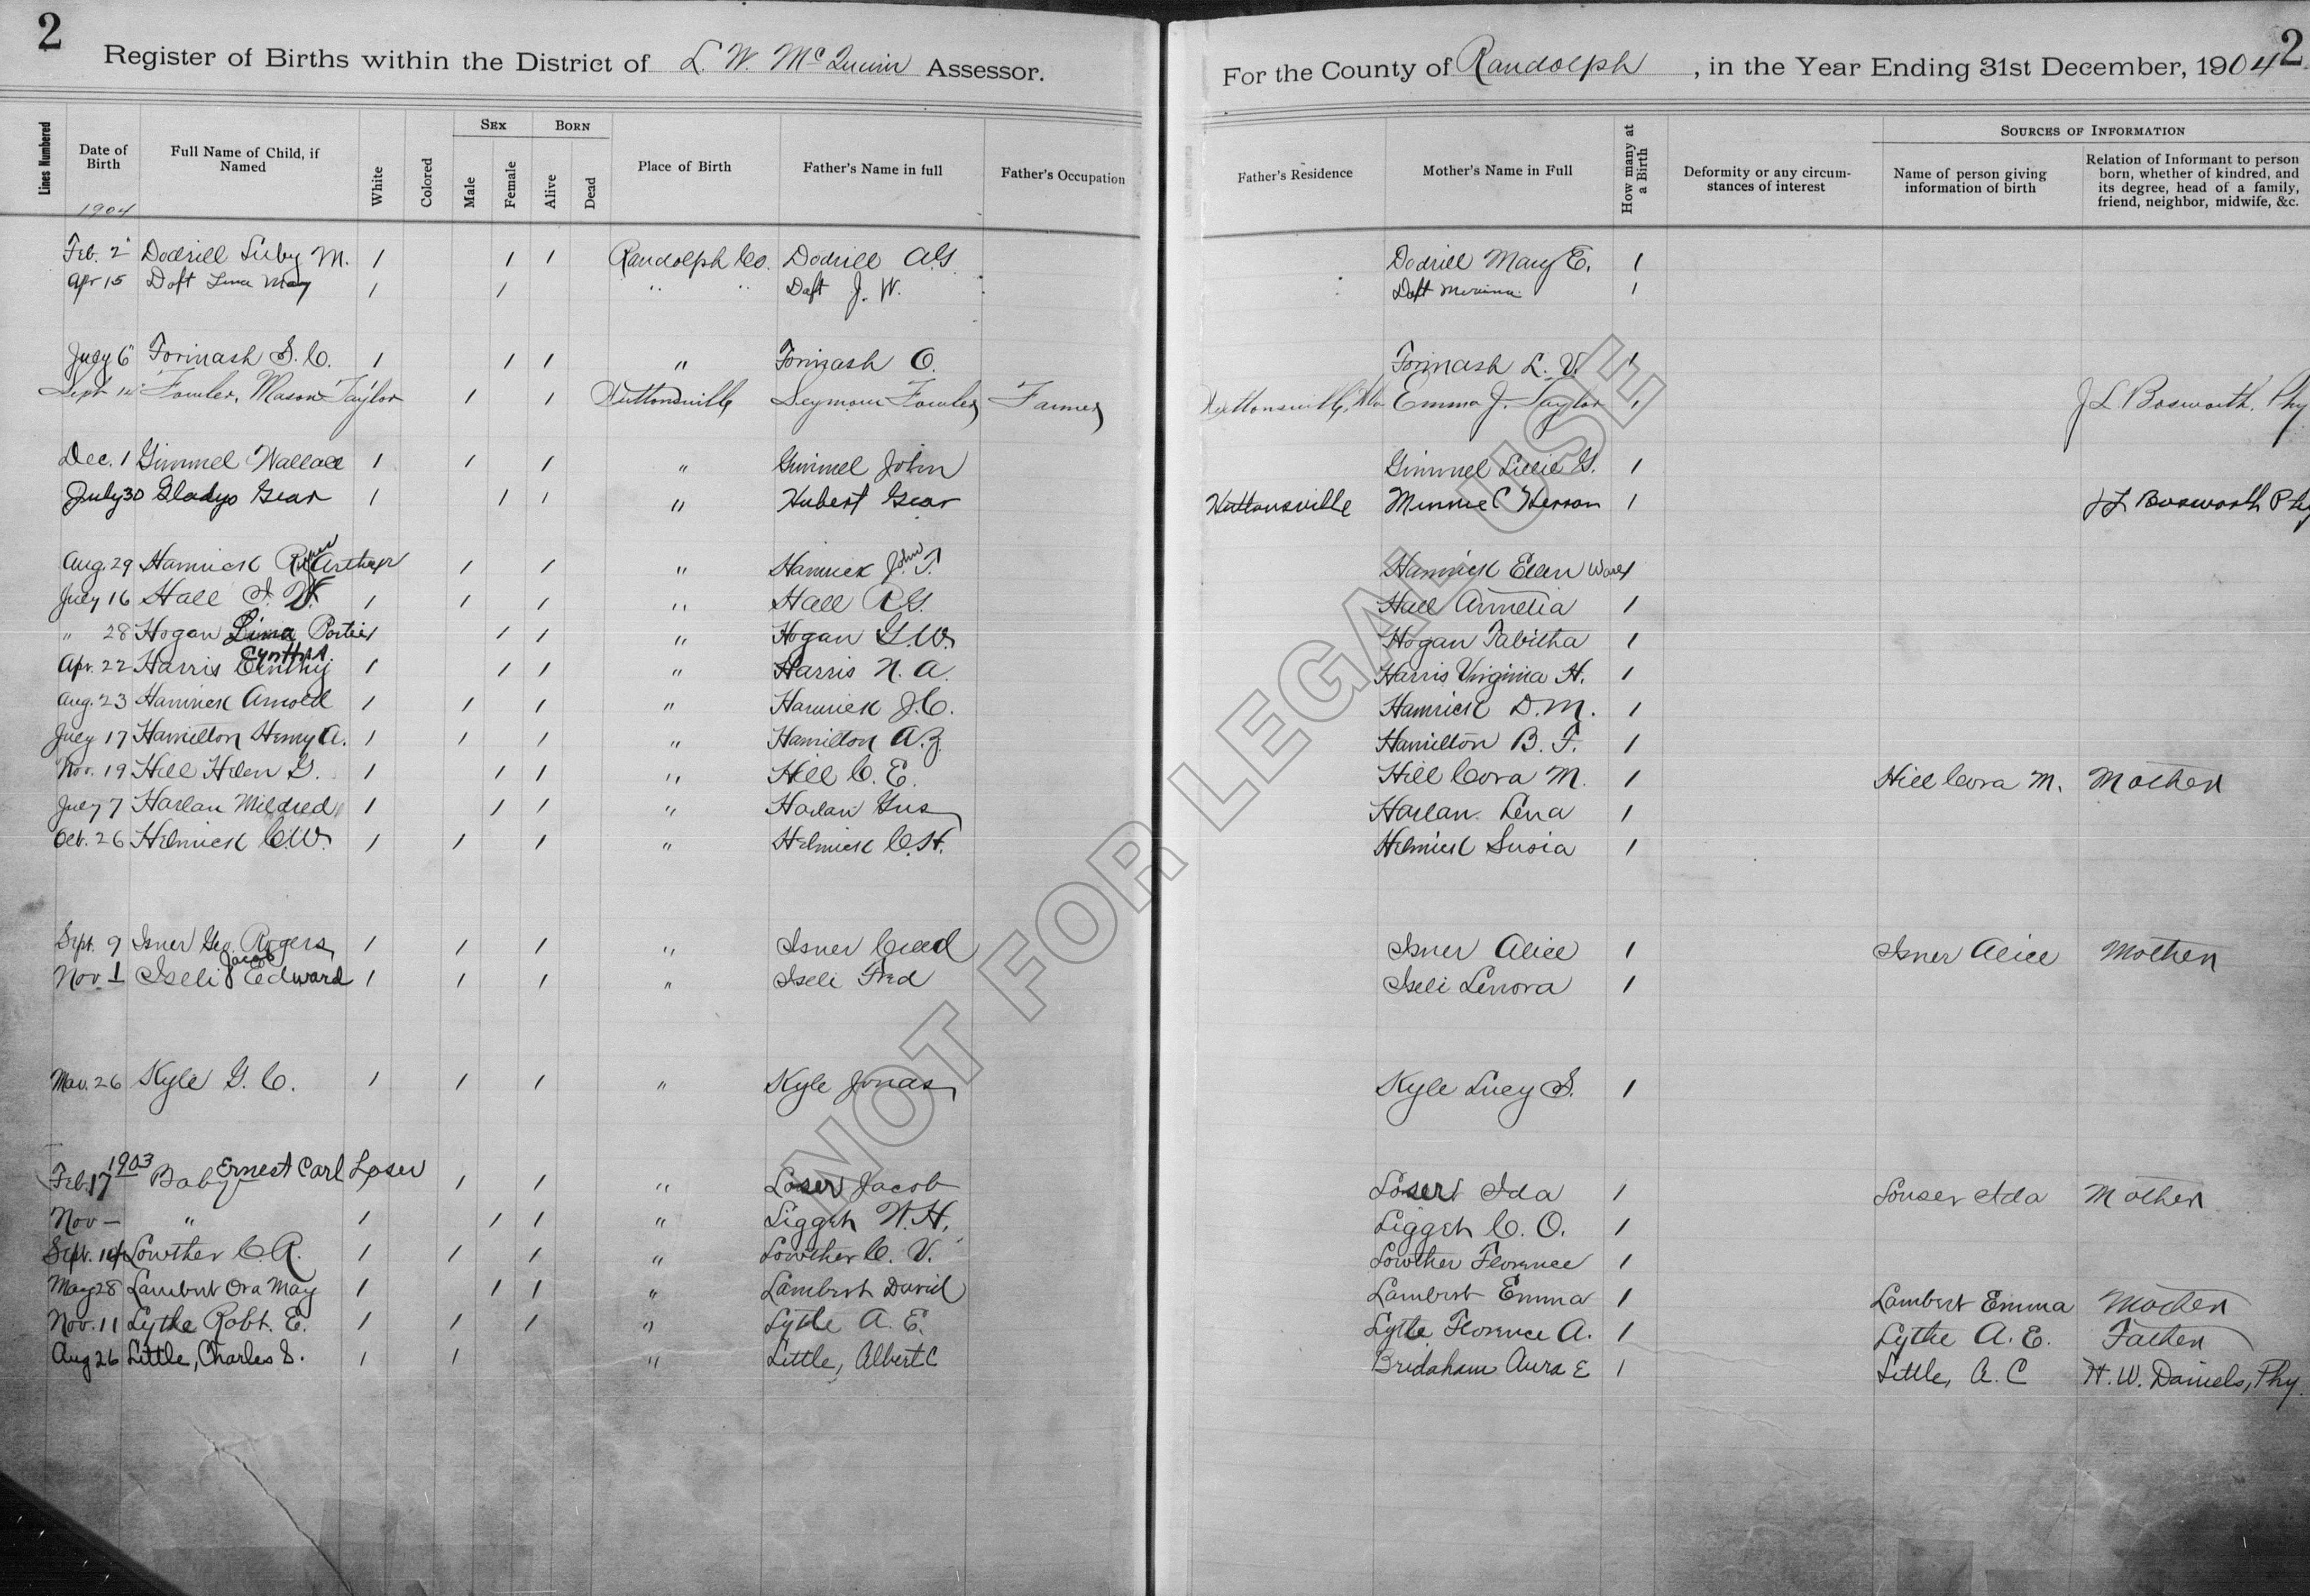 2
Register of Births within the District of L. W. McQuinn Assessor.
For the County of Randolph, in the Year Ending 31st December, 1904
2
Lines Numbered
Date of Birth
Full Name of Child, if Named
White
Colored
SEX
Male
Female
BORN
Alive
Dead
Place of Birth
Father's Name in full
Father's Occupation
Father's Residence
Mother's Name in Full
How many at a Birth
Deformity or any circumstances of interest
SOURCES OF INFORMATION
Name of person giving information of birth
Relation of Informant to person born, whether of kindred, and its degree, head of a family, friend, neighbor, midwife, &c.
1904
Feb. 2 Dodrill Siby M. 1 1 1 Randolph Co. Dodrill A.G. Dodrill Mary E. 1
Apr 15 Daft May 1 1 " " Daft J. W. Daft 1
July 6 Forinash S. C. 1 1 1 " Forinash O. Forinash L. V. 1
Sept Fowler, Mason Taylor 1 1 Huttonsville Seymour Fowler Farmer Huttonsville, Emma J. Taylor 1 J L Bosworth, Phy
Dec. 1 Gimmel Wallace 1 1 1 " Gimmel John Gimmel Lillie G. 1
July 30 Gladys Gear 1 1 1 " Hubert Gear Huttonsville Minnie C Herron 1 J L Bosworth Phy
Aug. 29 Hamrick Arthur 1 1 " Hamrick John T. Hamrick Ellen Ware 1
July 16 Hall I. W. 1 1 1 " Hall R G. Hall Armelia 1
" 28 Hogan Lima Portie 1 1 1 " Hogan G. W. Hogan Tabitha 1
Apr. 22 Harris Cynthia 1 1 1 " Harris N. A. Harris Virginia H. 1
Aug. 23 Hamrick Arnold 1 1 1 " Hamrick J. C. Hamrick D. M. 1
July 17 Hamilton Henry A. 1 1 1 " Hamilton A. J. Hamilton B. F. 1
Nov. 19 Hill Helen G. 1 1 1 " Hill C. E. Hill Cora M. 1 Hill Cora M. Mother
July 7 Harlan Mildred 1 1 1 " Harlan Gus Harlan Lena 1
Oct. 26 Helmick C. W. 1 1 1 " Helmick C. H. Helmick Susia 1
Sept. 9 Isner Geo. Rogers 1 1 1 " Isner Creed Isner Alice 1 Isner Alice Mother
Nov. 1 Iseli Jacob Edward 1 1 1 " Iseli Fred Iseli Lenora 1
Mar. 26 Kyle G. C. 1 1 1 " Kyle Jonas Kyle Lucy S. 1
1903
Feb. 17 Baby Ernest Carl Loser 1 1 " Loser Jacob Loser Ida 1 Louser Ida Mother
Nov — " 1 1 1 " Liggett W. H. Liggett C. O. 1
Sept. 14 Lowther C. R. 1 1 1 " Lowther C. V. Lowther Florence 1
May 28 Lambert Ora May 1 1 1 " Lambert David Lambert Emma 1 Lambert Emma Mother
Nov. 11 Lytle Robt. E. 1 1 1 " Lytle A. E. Lytle Florence A. 1 Lytle A. E. Father
Aug 26 Little, Charles S. 1 1 " Little, Albert C Bridaham Aura E 1 Little, A. C H. W. Daniels, Phy.
NOT FOR LEGAL USE